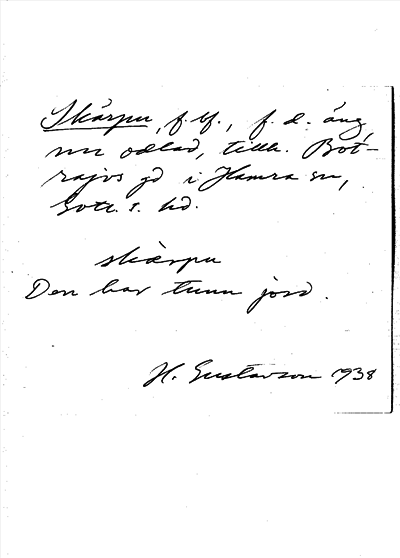 Skärpu, f. bf., f. d. äng,
nu odlad, tillh. Bot-
rajvs gd i Hamra sn,
Gotl. s. hd.
skärpu
Den har tunn jord.
H. Gustavson 1938